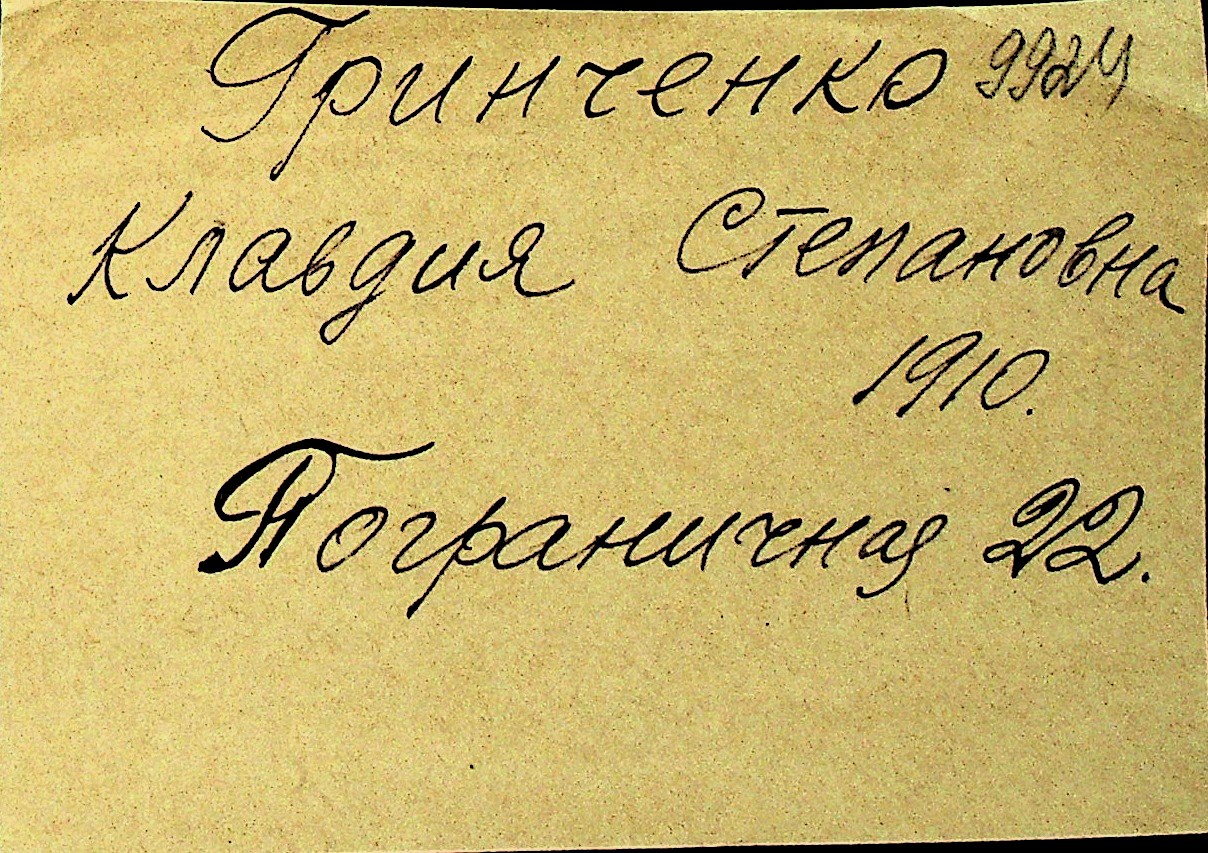 Гринченко 9924
Клавдия Степановна
1910.
Пограничная 22.